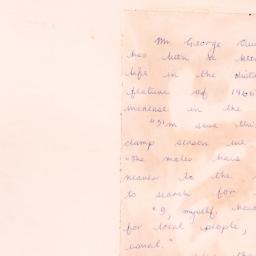 Mr George
has been a keen
life in the
feature of 1966
increase in the
"I'm sure this
damp season
"The moles have
nearer to the
to search for
"I, myself, have
for local people,
usual."